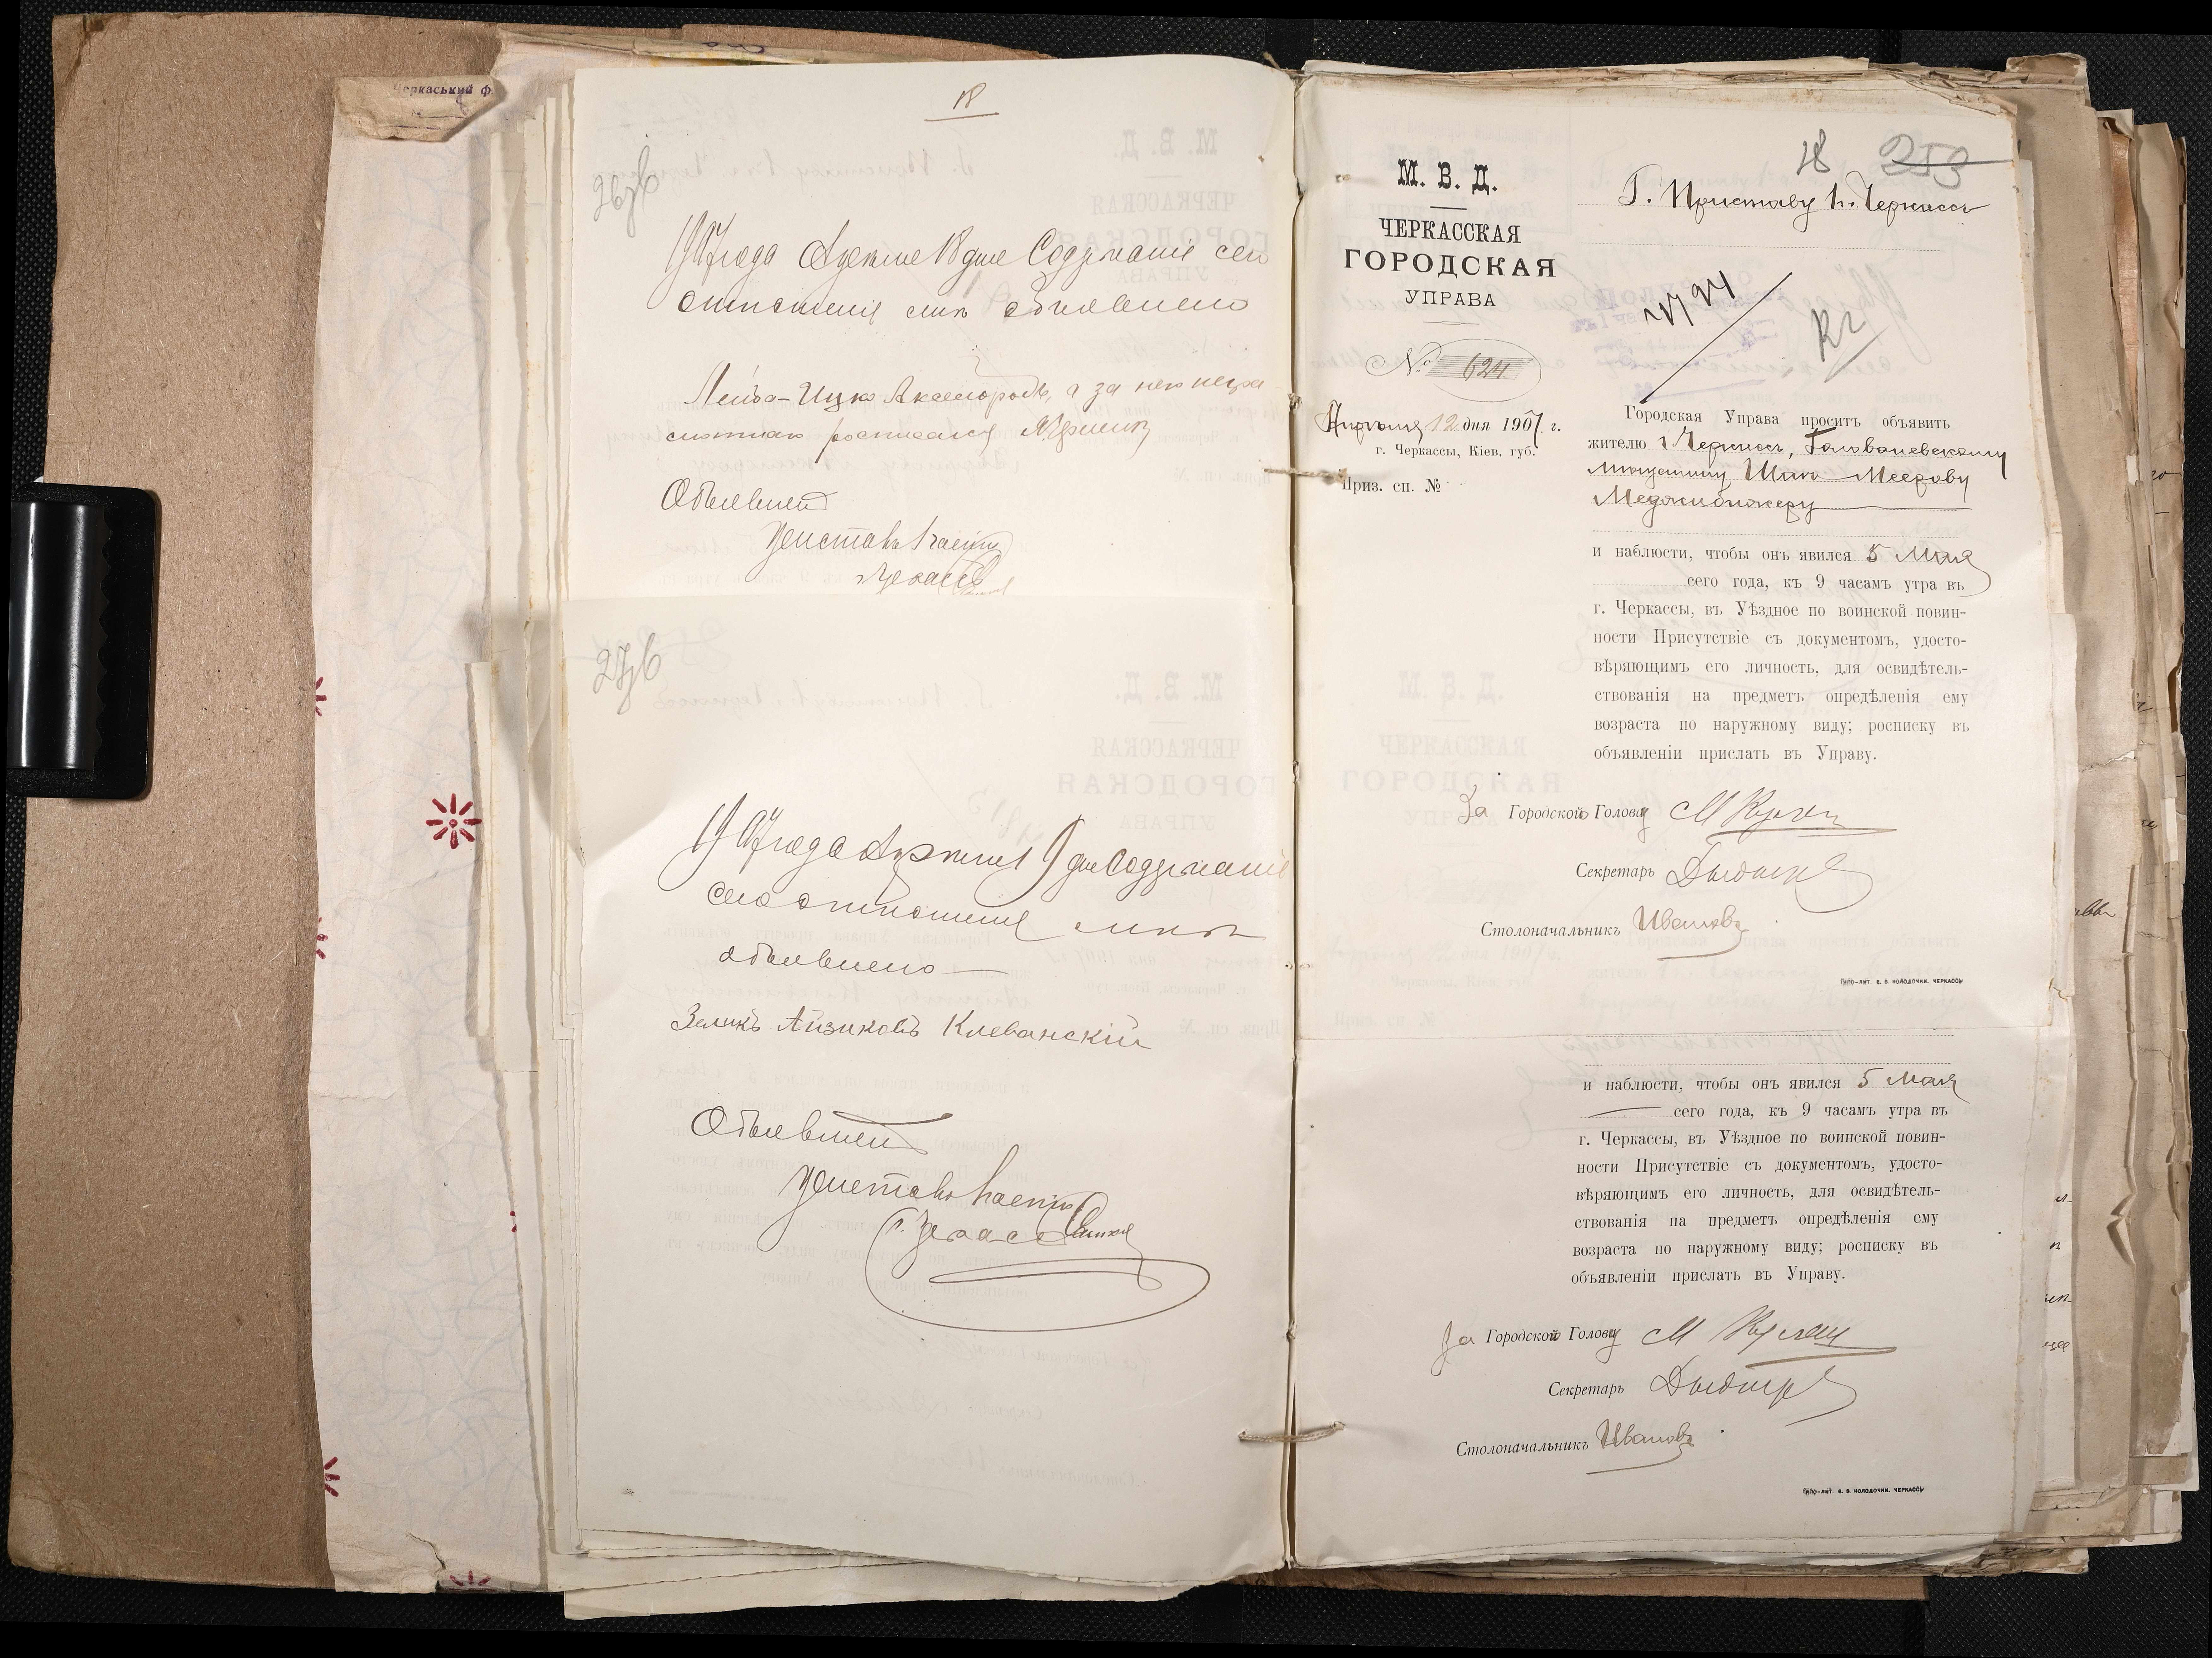 Черкаський ф
18
1907 года Апреля 18 дня Содержание сего
отношения мне объявлено
Лейба-Ицко Аксельродъ, а за него негра-
мотнаго росписался
Объявилъ
Приставъ 1 части
г. Черкассъ
1907 года Апреля 9 дня Содержание
сего отношения мне
объявлено
Зеликъ Айзиковъ Клеванскій
Объявилъ
Приставъ 1 части
г. Черкассъ
18 253
М. В. Д.
Г. Приставу 1 ч. Черкассъ
ЧЕРКАССКАЯ
ГОРОДСКАЯ
УПРАВА
№ 624
Апреля 12 дня 1907 г.
г. Черкассы, Кіев. губ.
Приз. сп. №
Городская Управа проситъ объявить
жителю г. Черкассъ, Голованевскому
мещанину Меерову
Меджибожеру
и наблюсти, чтобы онъ явился 5 Мая
сего года, къ 9 часамъ утра въ
г. Черкассы, въ Уѣздное по воинской повин-
ности Присутствіе съ документомъ, удосто-
вѣряющимъ его личность, для освидѣтель-
ствованія на предметъ опредѣленія ему
возраста по наружному виду; росписку въ
объявленіи прислать въ Управу.
За Городской Голову
Секретарь
Столоначальникъ Ивановъ
Типо-лит. В. В. Колодочки. Черкассы
и наблюсти, чтобы онъ явился 5 Мая
сего года, къ 9 часамъ утра въ
г. Черкассы, въ Уѣздное по воинской повин-
ности Присутствіе съ документомъ, удосто-
вѣряющимъ его личность, для освидѣтель-
ствованія на предметъ опредѣленія ему
возраста по наружному виду; росписку въ
объявленіи прислать въ Управу.
За Городской Голову
Секретарь
Столоначальникъ Ивановъ
Типо-лит. В. В. Колодочки. Черкассы